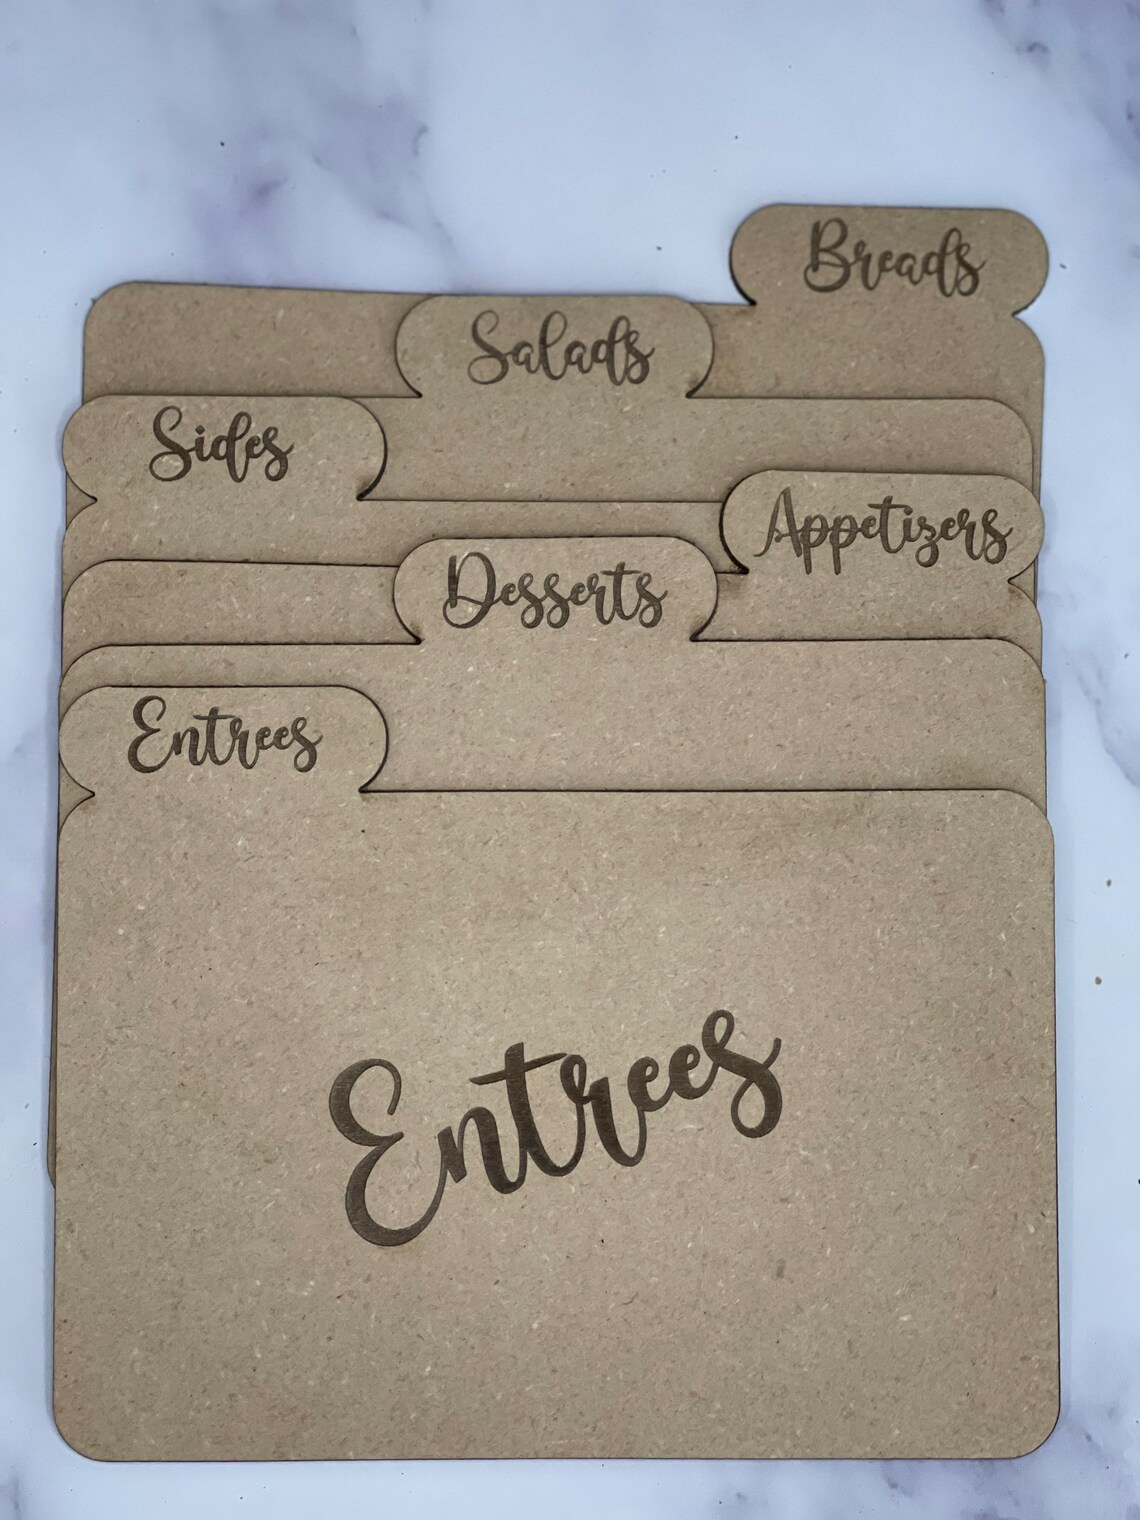 Breads
Salads
Sides
Appetizers
Desserts
Entrees
Entrees